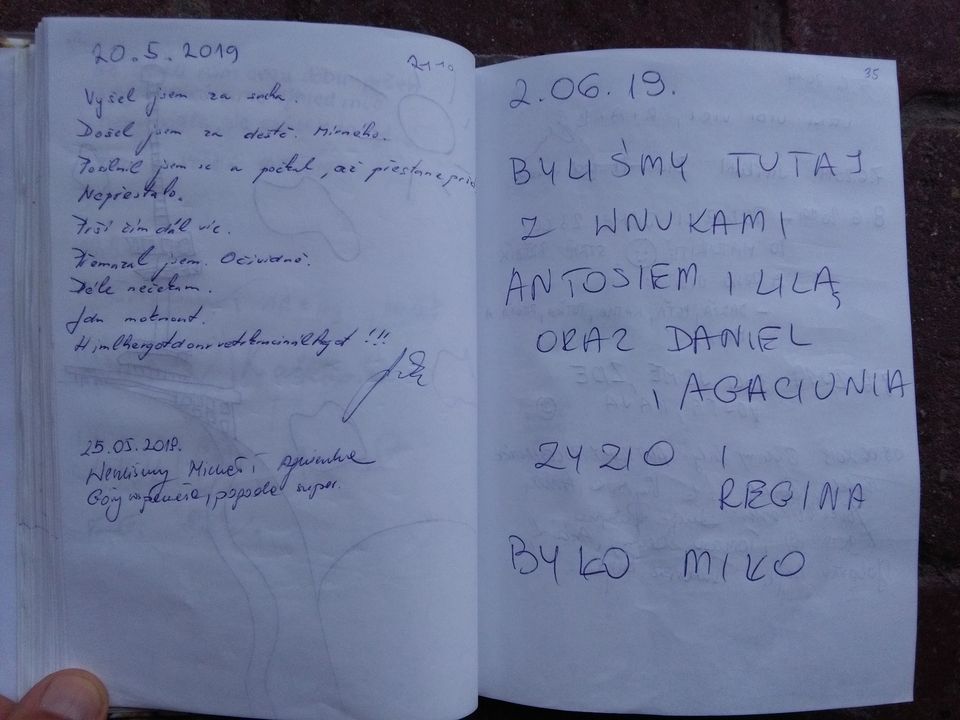 20.5.2019
Vyšel jsem za sucha.
Došel jsem za deště. Mírného.
jsem se a počkal, až přestane
Nepřestalo.
Prší čím dál víc.
Přemrzl jsem. Očividně.
Déle nečekám.
Jdu moknout.
!!!
25.05.2019.
Michał i Agnieszka
Góry wspaniałe, pogoda super.
35
2.06.19.
BYLIŚMY TUTAJ
Z WNUKAMI
ANTOSIEM I LILĄ
ORAZ DANIEL
I AGACIUNIA
ZYZIO I
REGINA
BYŁO MIŁO